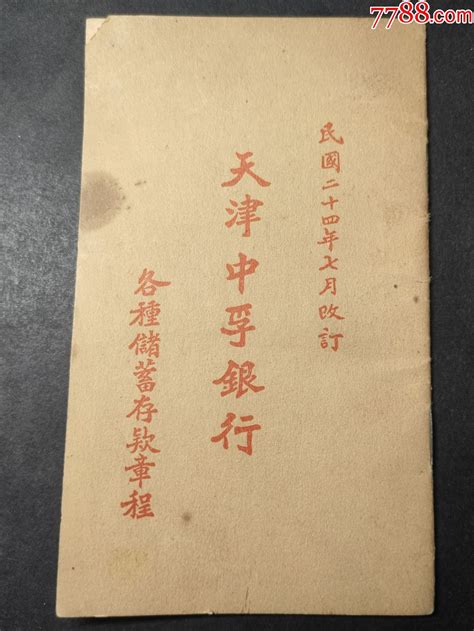 7788.com
民國二十四年七月改訂
天津中孚銀行
各種儲蓄存款章程